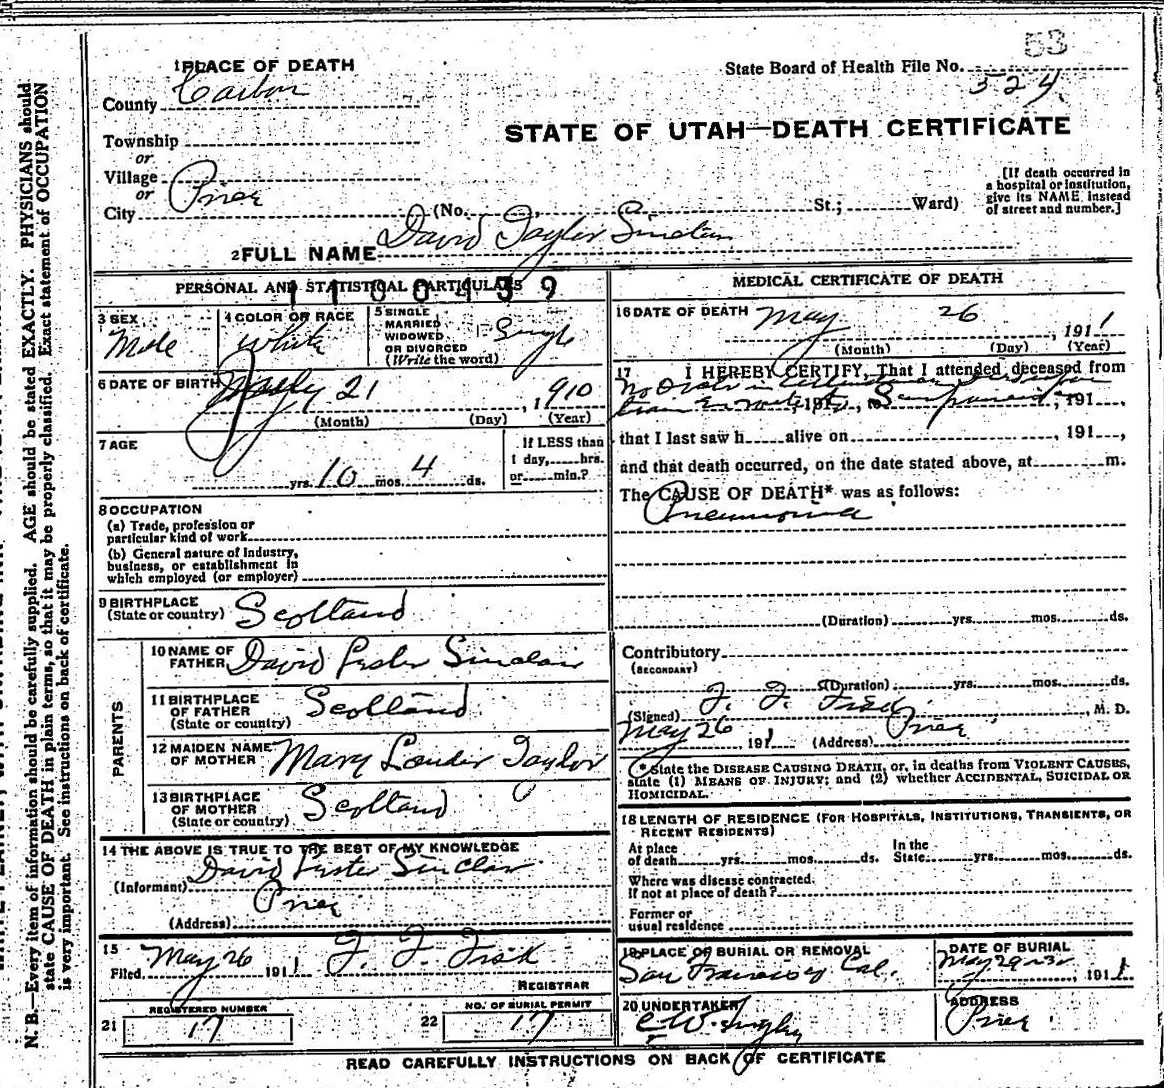 53
1 PLACE OF DEATH
State Board of Health File No. 524
County Carbon
STATE OF UTAH—DEATH CERTIFICATE
Township
or
Village
or
City Price (No. St.; Ward)
[If death occurred in
a hospital or institution,
give its NAME instead
of street and number.]
2 FULL NAME David Taylor Sinclair
PERSONAL AND STATISTICAL PARTICULARS
1100439
3 SEX
Male
4 COLOR OR RACE
White
5 SINGLE
MARRIED
WIDOWED
OR DIVORCED
(Write the word)
Single
6 DATE OF BIRTH July 21, 1910
(Month) (Day) (Year)
7 AGE
yrs. 10 mos. 4 ds.
If LESS than
1 day, hrs.
or min.?
8 OCCUPATION
(a) Trade, profession or
particular kind of work
(b) General nature of Industry,
business, or establishment in
which employed (or employer)
9 BIRTHPLACE
(State or country) Scotland
PARENTS
10 NAME OF
FATHER David Sinclair
11 BIRTHPLACE
OF FATHER
(State or country) Scotland
12 MAIDEN NAME
OF MOTHER Mary Lauder Taylor
13 BIRTHPLACE
OF MOTHER
(State or country) Scotland
14 THE ABOVE IS TRUE TO THE BEST OF MY KNOWLEDGE
(Informant) David Sinclair
(Address) Price
15
Filed, May 26 1911 F. F. Fisk
REGISTRAR
REGISTERED NUMBER
21 17
NO. OF BURIAL PERMIT
22 17
MEDICAL CERTIFICATE OF DEATH
16 DATE OF DEATH May 26, 1911
(Month) (Day) (Year)
17 I HEREBY CERTIFY, That I attended deceased from
No Dr in attendance
, 191 , to , 191 ,
that I last saw h alive on , 191 ,
and that death occurred, on the date stated above, at m.
The CAUSE OF DEATH* was as follows:
Pneumonia
(Duration) yrs. mos. ds.
Contributory
(SECONDARY)
(Duration) yrs. mos. ds.
(Signed) F. F. Fisk, M. D.
May 26 1911 (Address) Price
*State the DISEASE CAUSING DEATH, or, in deaths from VIOLENT CAUSES,
state (1) MEANS OF INJURY; and (2) whether ACCIDENTAL, SUICIDAL OR
HOMICIDAL.
18 LENGTH OF RESIDENCE (FOR HOSPITALS, INSTITUTIONS, TRANSIENTS, OR
RECENT RESIDENTS)
At place
of death yrs. mos. ds.
In the
State yrs. mos. ds.
Where was disease contracted.
If not at place of death?
Former or
usual residence
19 PLACE OF BURIAL OR REMOVAL
San Francisco Cal.
DATE OF BURIAL
May 29 1911
20 UNDERTAKER
ADDRESS
Price
READ CAREFULLY INSTRUCTIONS ON BACK OF CERTIFICATE
N. B.—Every item of information should be carefully supplied. AGE should be stated EXACTLY. PHYSICIANS should
state CAUSE OF DEATH in plain terms, so that it may be properly classified. Exact statement of OCCUPATION
is very important. See instructions on back of certificate.